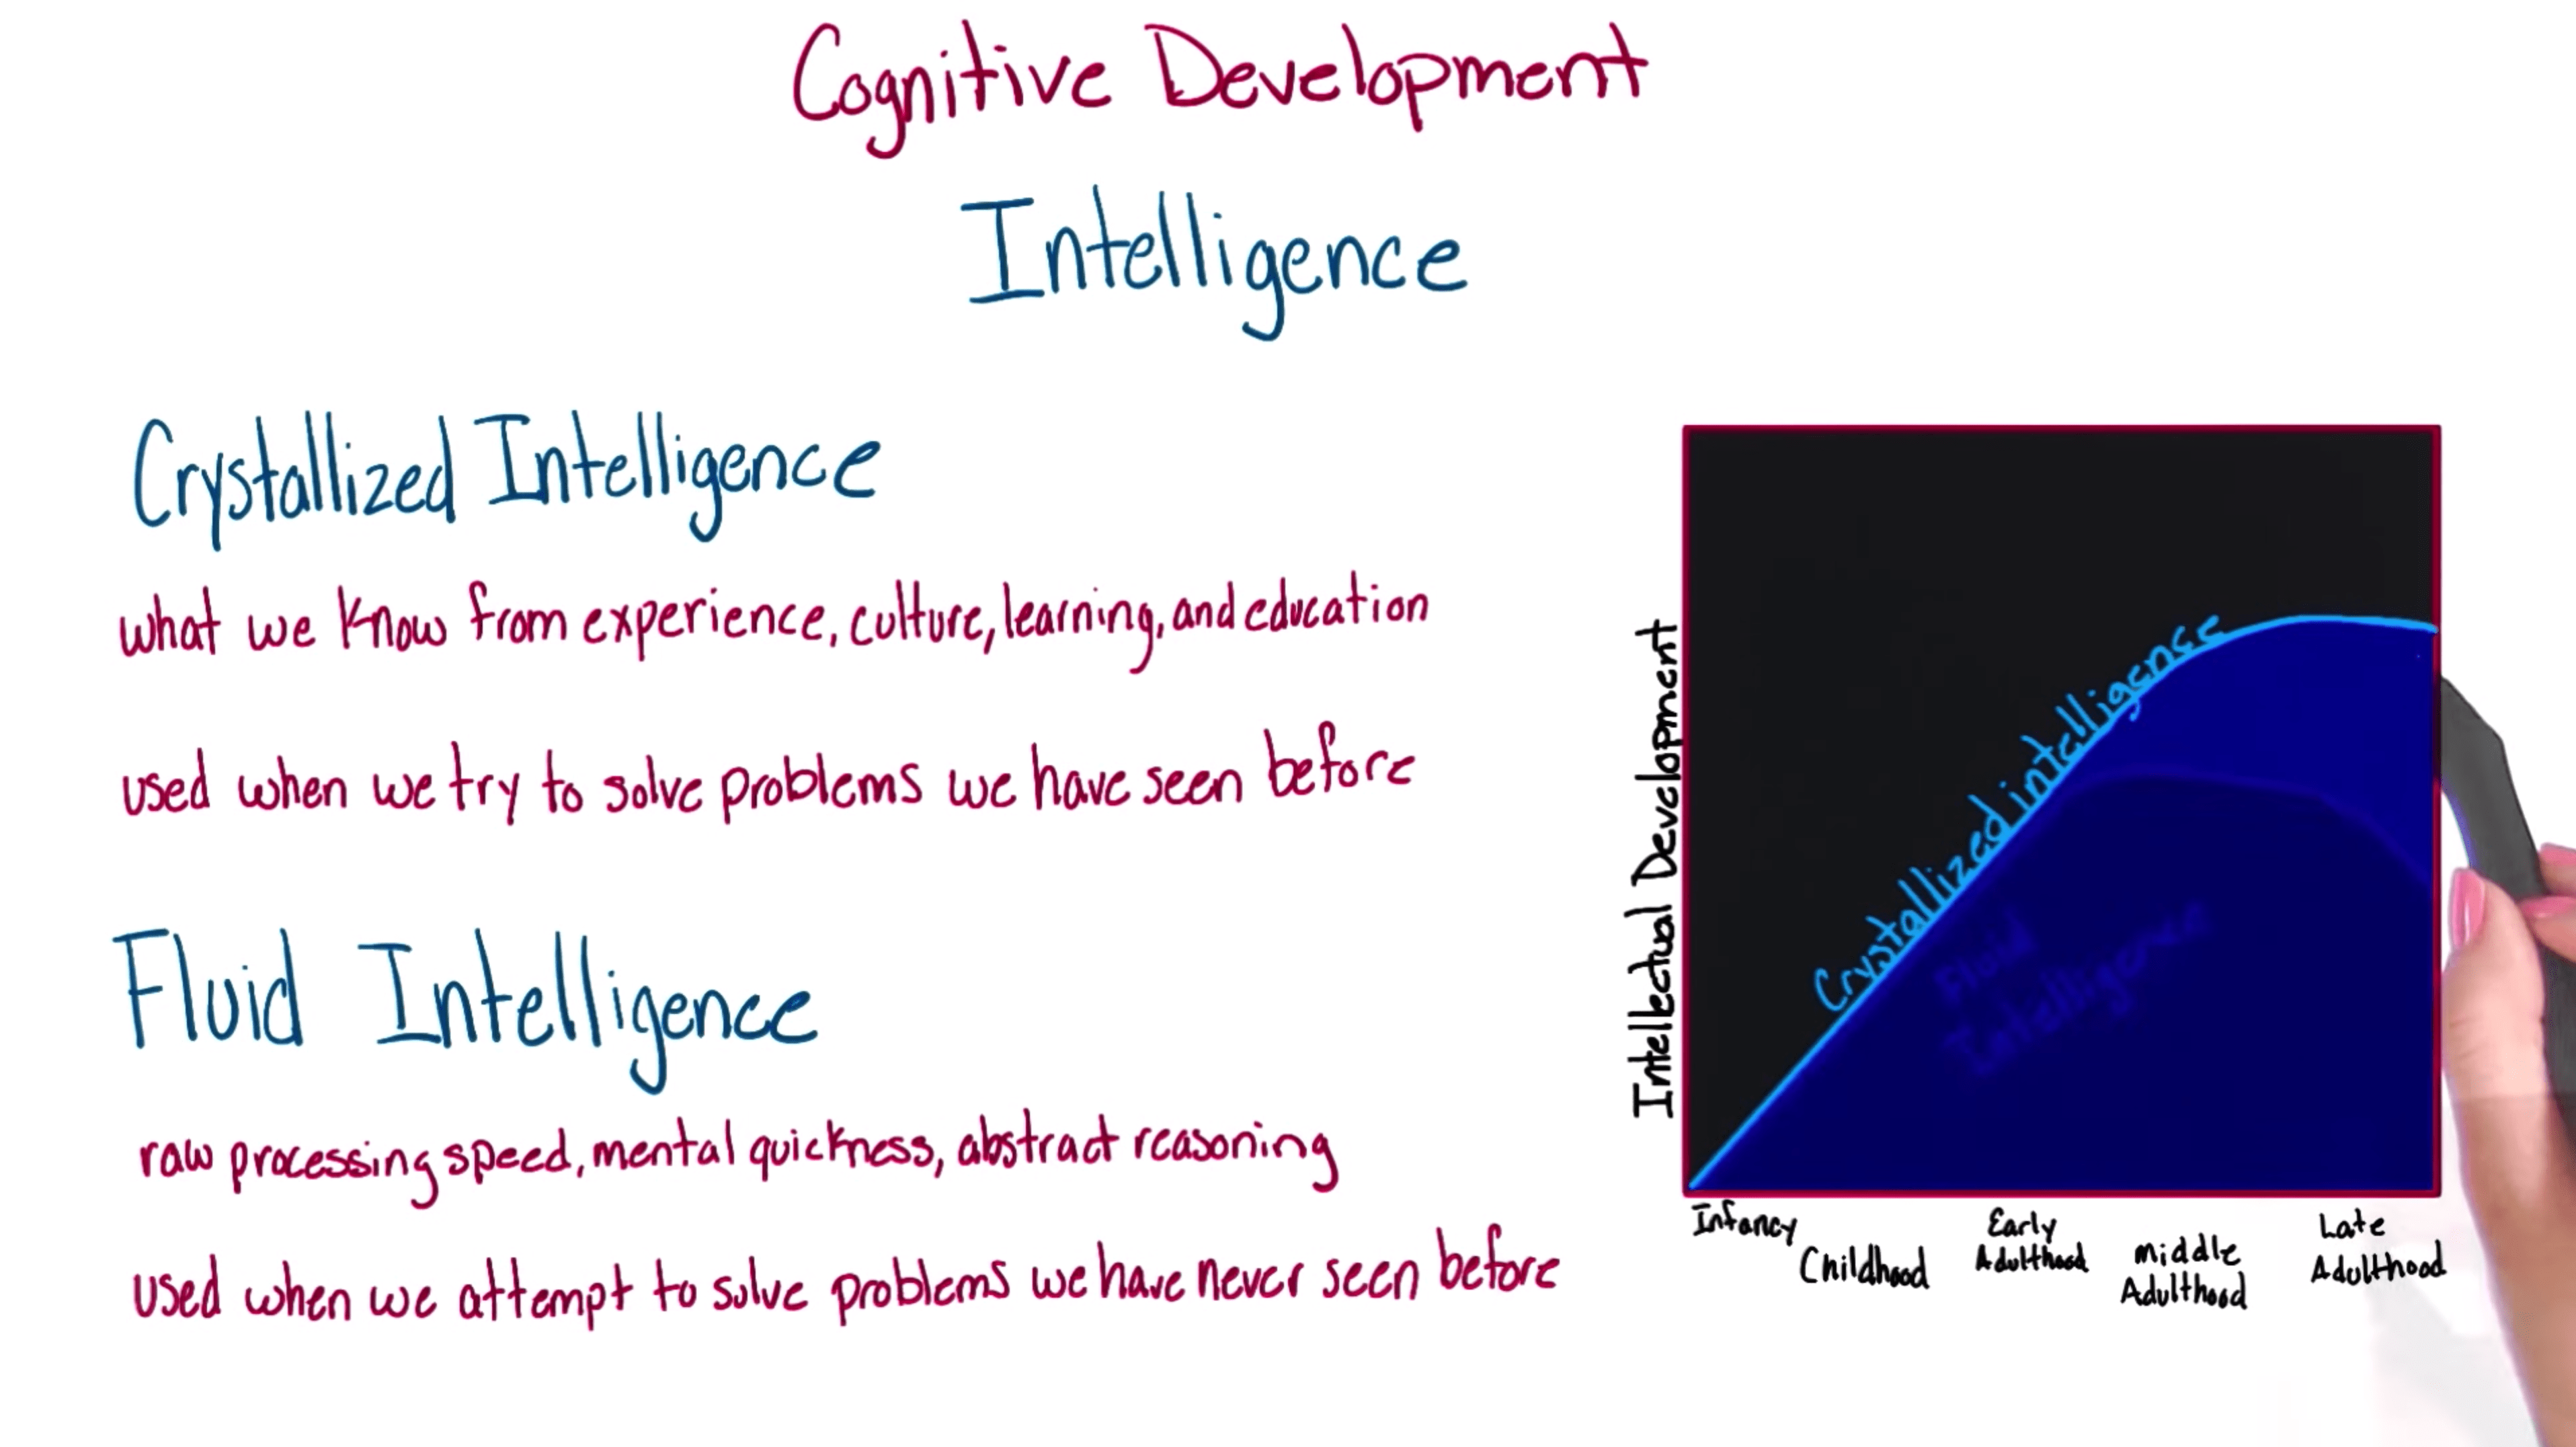 Cognitive Development
Intelligence
Crystallized Intelligence
what we know from experience, culture, learning, and education
used when we try to solve problems we have seen before
Fluid Intelligence
raw processing speed, mental quickness, abstract reasoning
used when we attempt to solve problems we have never seen before
Intellectual Development
Crystallized intelligence
Fluid
Intelligence
Infancy
Childhood
Early
Adulthood
middle
Adulthood
Late
Adulthood